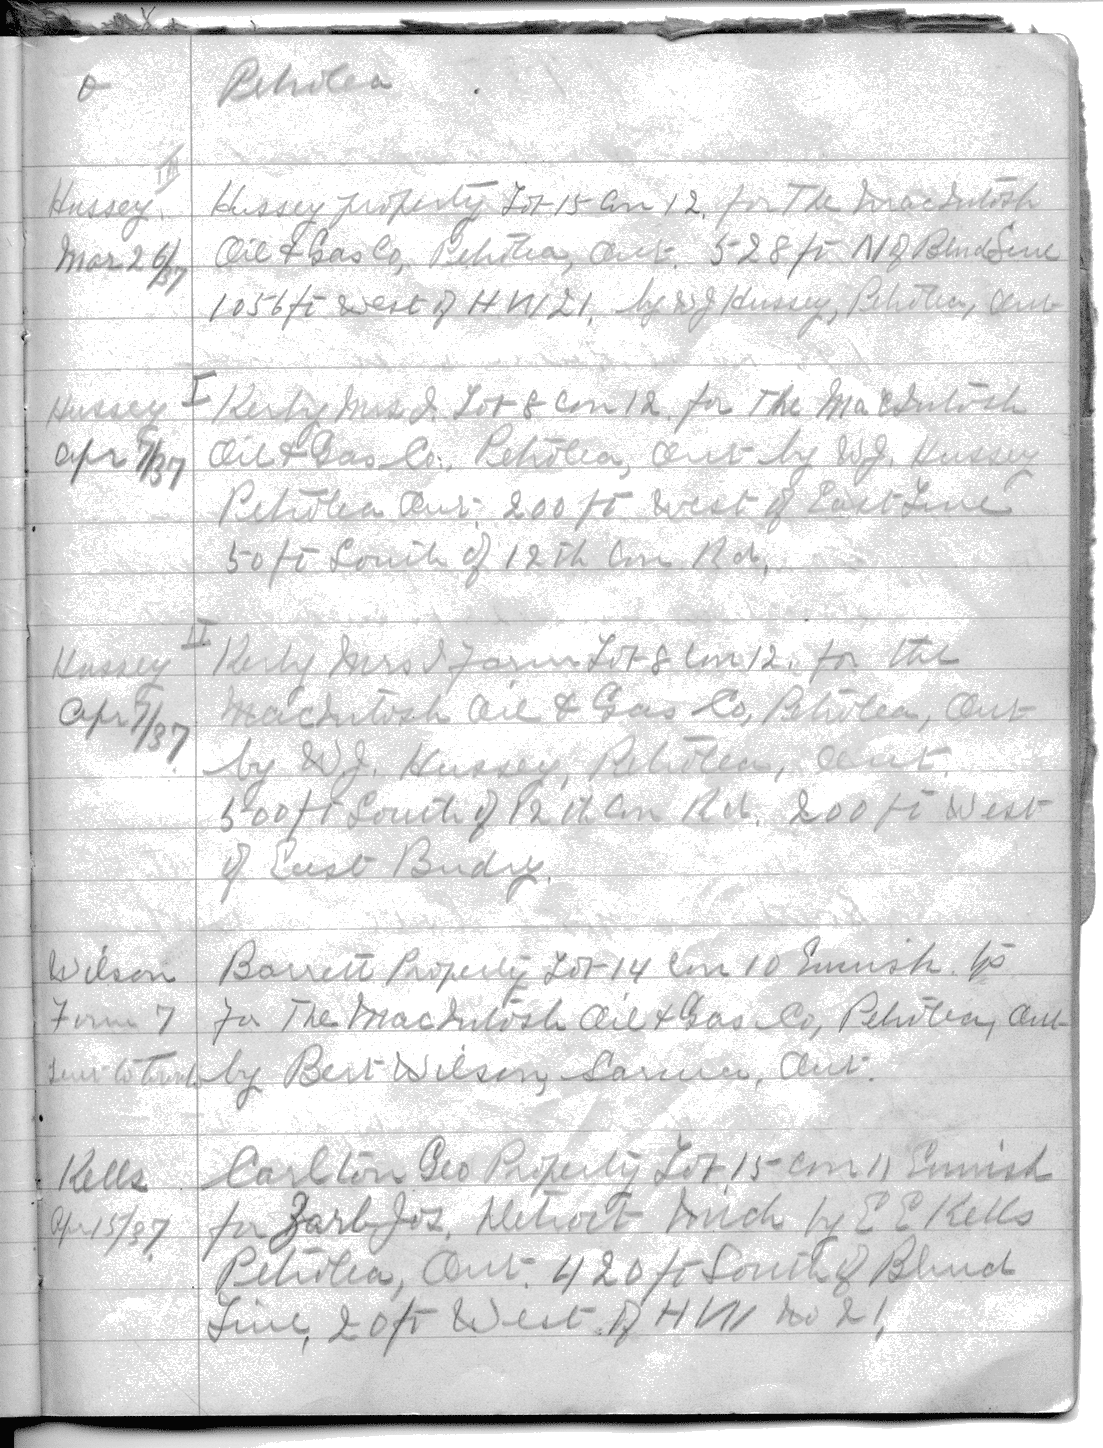 Petrolea
III
Hussey. Hussey property Lot 15 Con 12. for The MacIntosh
Mar 26/37 Oil & Gas Co, Petrolea, Ont. 528 ft N of Blind Line
1056 ft West of H W 21. by W J Hussey, Petrolea, Ont
Hussey I Kerby Mrs J. Lot 8 Con 12. for The MacIntosh
Apr 5/37 Oil & Gas Co. Petrolea, Ont by W J. Hussey
Petrolea Ont. 200 ft West of East Line
50 ft South of 12 th Con Rd.
Hussey II Kerby Mrs J Farm Lot 8 Con 12. for the
Apr 5/37 MacIntosh Oil & Gas Co, Petrolea, Ont
by W J. Hussey, Petrolea, Ont.
500 ft South of 12 th Con Rd. 200 ft West
of East Bndry.
Wilson Barrett Property Lot 14 Con 10 Ennisk.
Form 7 For The MacIntosh Oil & Gas Co, Petrolea, Ont
by Bert Wilson, Sarnia, Ont.
Kells Carlton Geo Property Lot 15 Con 11 Ennisk
Apr 15/37 for Zarb Jos. Detroit Mich by E E Kells
Petrolea, Ont. 420 ft South of Blind
Line, 20 ft West of H W No 21.